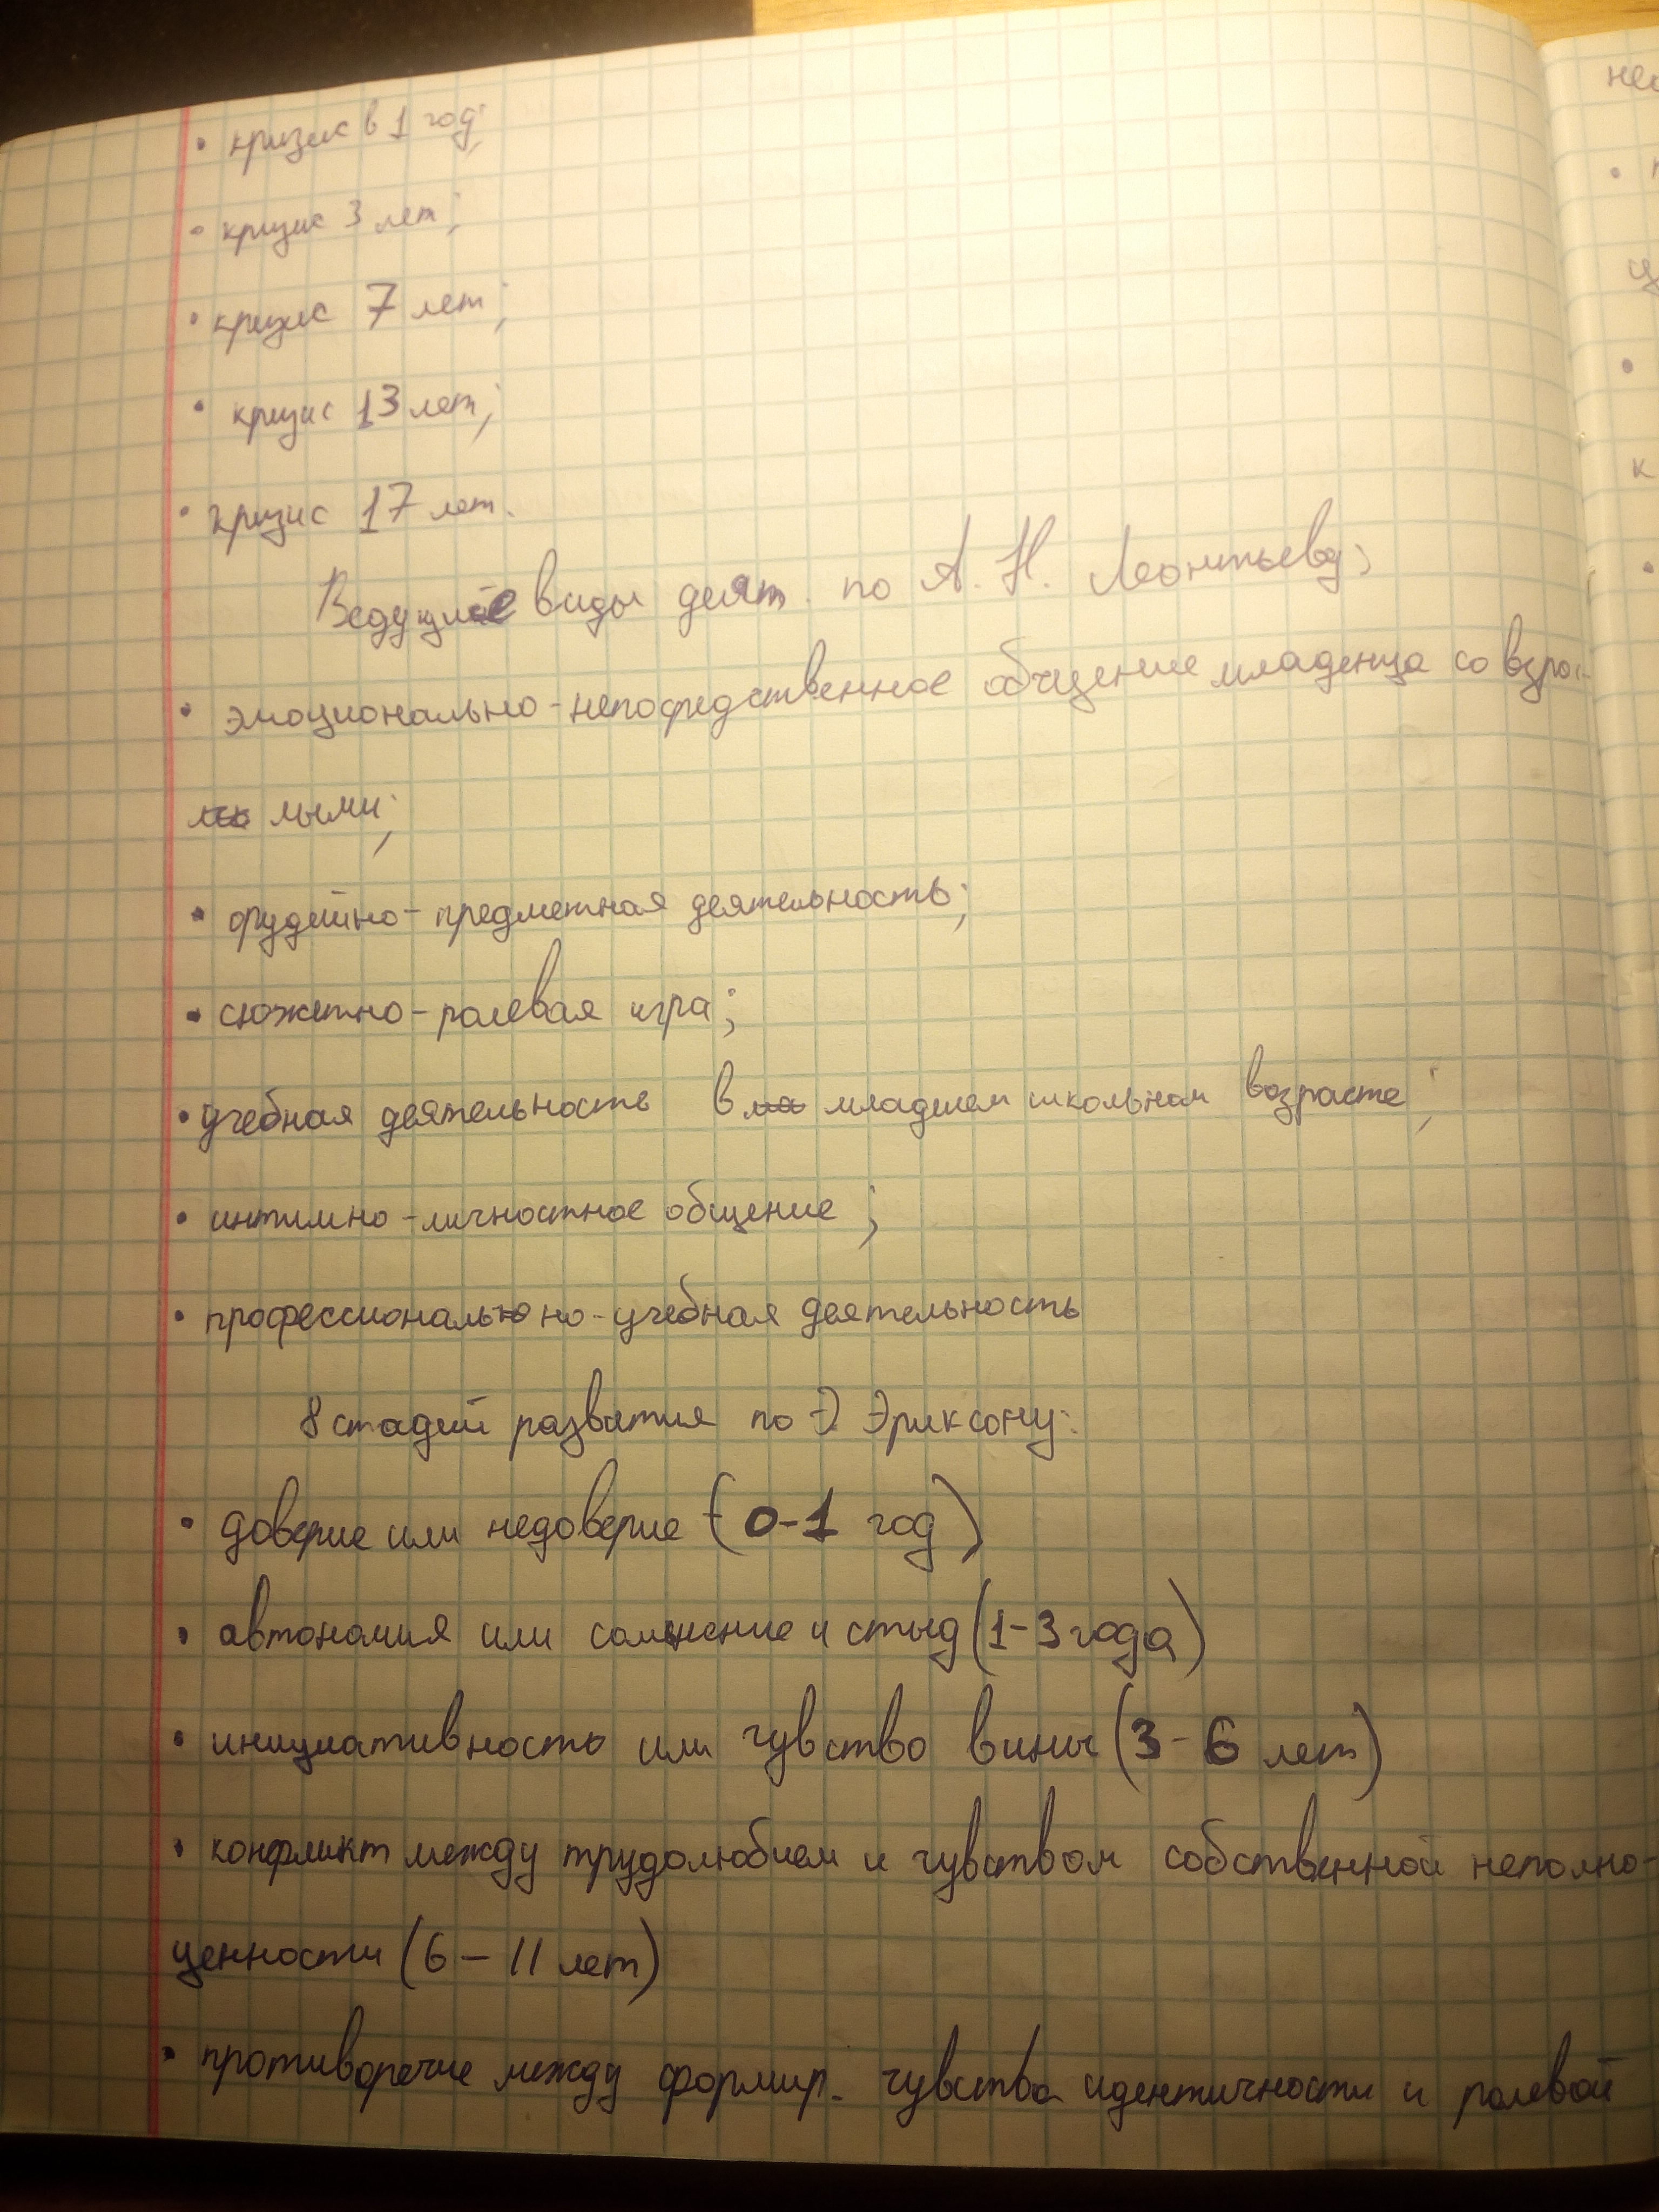 • кризис в 1 год;
• кризис 3 лет;
• кризис 7 лет;
• кризис 13 лет;
• кризис 17 лет.
Ведущие виды деят. по А. Н. Леонтьеву:
• эмоционально-непосредственное общение младенца со взрос-
лыми;
• орудийно-предметная деятельность;
• сюжетно-ролевая игра;
• учебная деятельность в младшем школьном возрасте;
• интимно-личностное общение;
• профессионально-учебная деятельность
8 стадий развития по Э Эриксону:
• доверие или недоверие (0-1 год)
• автономия или сомнение и стыд (1-3 года)
• инициативность или чувство вины (3-6 лет)
• конфликт между трудолюбием и чувством собственной неполно-
ценности (6 – 11 лет)
• противоречие между формир. чувства идентичности и ролевой